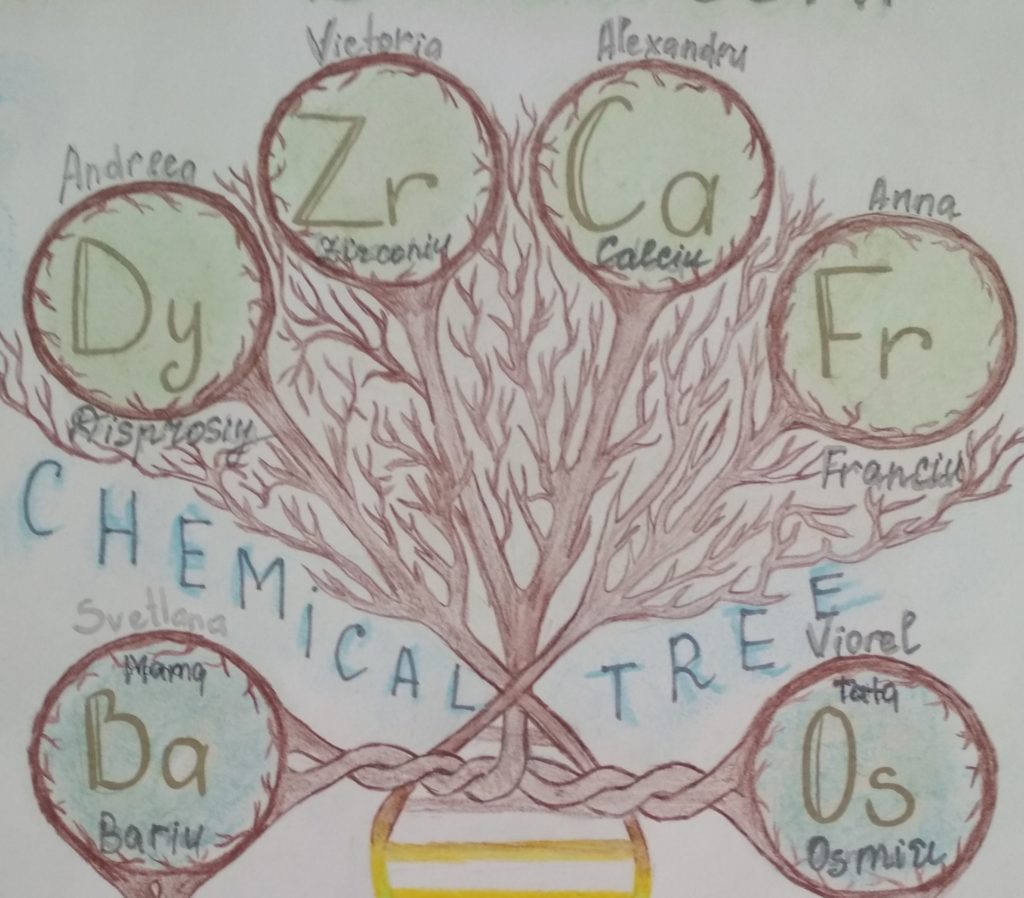 Victoria
Alexandru
Andreea
Anna
Zr
Zirconiu
Ca
Calciu
Dy
Disprosiu
Fr
Franciu
CHEMiCAL TREE
Svetlana
Mama
Ba
Bariu
Viorel
Tata
Os
Osmiu